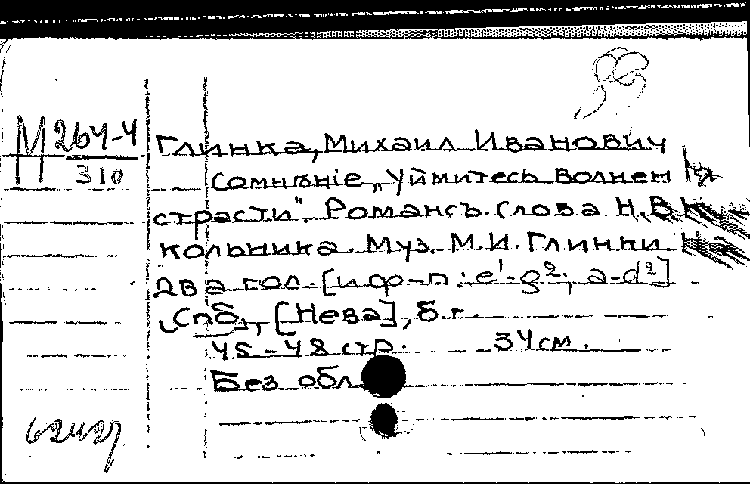 М 264-4
310
Глинка, Михаил Иванович
Сомнѣніе „Уймитесь волнен
страсти". Романсъ. Слова Н. В К
кольника. Муз. М. И. Глинки На
два гол. [и ф-п.: e¹-g²; a-d²]
Спб., [Нева], б. г.
45-48 стр. 34 см.
Без обл